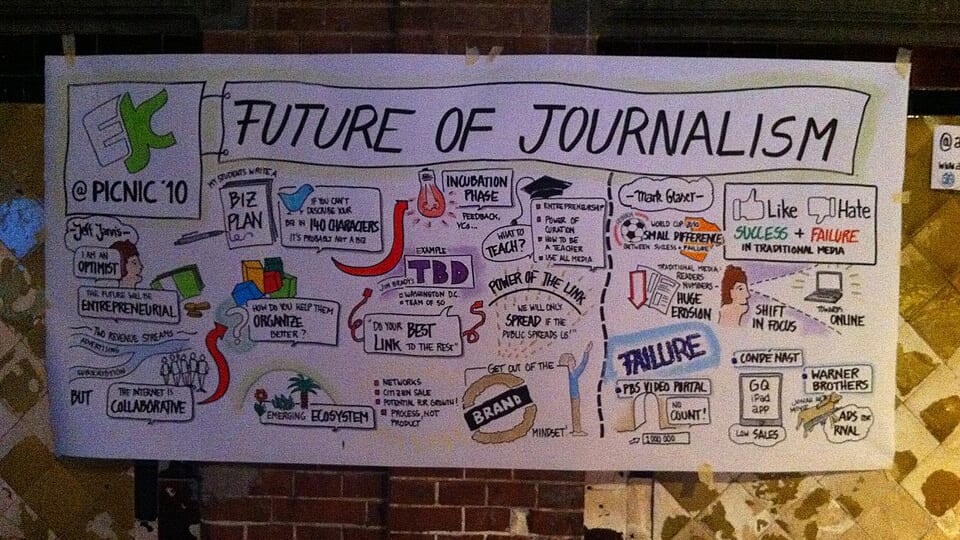 EJC
@ PICNIC '10
FUTURE OF JOURNALISM
- Jeff Jarvis -
I AM AN
OPTIMIST
THE FUTURE WILL BE
ENTREPRENEURIAL
TWO REVENUE STREAMS
ADVERTISING
SUBSCRIPTION
BUT
THE INTERNET IS
COLLABORATIVE
MY STUDENTS WRITE A
BIZ
PLAN
IF YOU CAN'T
DESCRIBE YOUR
BIZ IN 140 CHARACTERS
IT'S PROBABLY NOT A BIZ
HOW DO YOU HELP THEM
ORGANIZE
BETTER?
EMERGING ECOSYSTEM
NETWORKS
CITIZEN SALE
POTENTIAL FOR GROWTH!
PROCESS, NOT
PRODUCT
INCUBATION
PHASE
FEEDBACK,
VCs...
WHAT TO
TEACH?
ENTREPRENEURSHIP
POWER OF
CURATION
HOW TO BE
A TEACHER
USE ALL MEDIA
EXAMPLE
TBD
JIM BRADY'S
WASHINGTON D.C.
TEAM OF 50
"DO YOUR BEST
LINK TO THE REST"
POWER OF THE LINK
"WE WILL ONLY
SPREAD IF THE
PUBLIC SPREADS US!"
GET OUT OF THE
BRAND
MINDSET!
- Mark Glaser -
WORLD CUP 2010
SMALL DIFFERENCE
BETWEEN SUCCESS + FAILURE
Like
Hate
SUCCESS + FAILURE
IN TRADITIONAL MEDIA
TRADITIONAL MEDIA:
READERS
NUMBERS:
HUGE
EROSION
SHIFT
IN FOCUS
TOWARDS
ONLINE
FAILURE
PBS VIDEO PORTAL
NO
COUNT!
1000 000
CONDÉ NAST
GQ
iPad
app
LOW SALES
WARNER
BROTHERS
ADS FOR
RIVAL
@a
www.